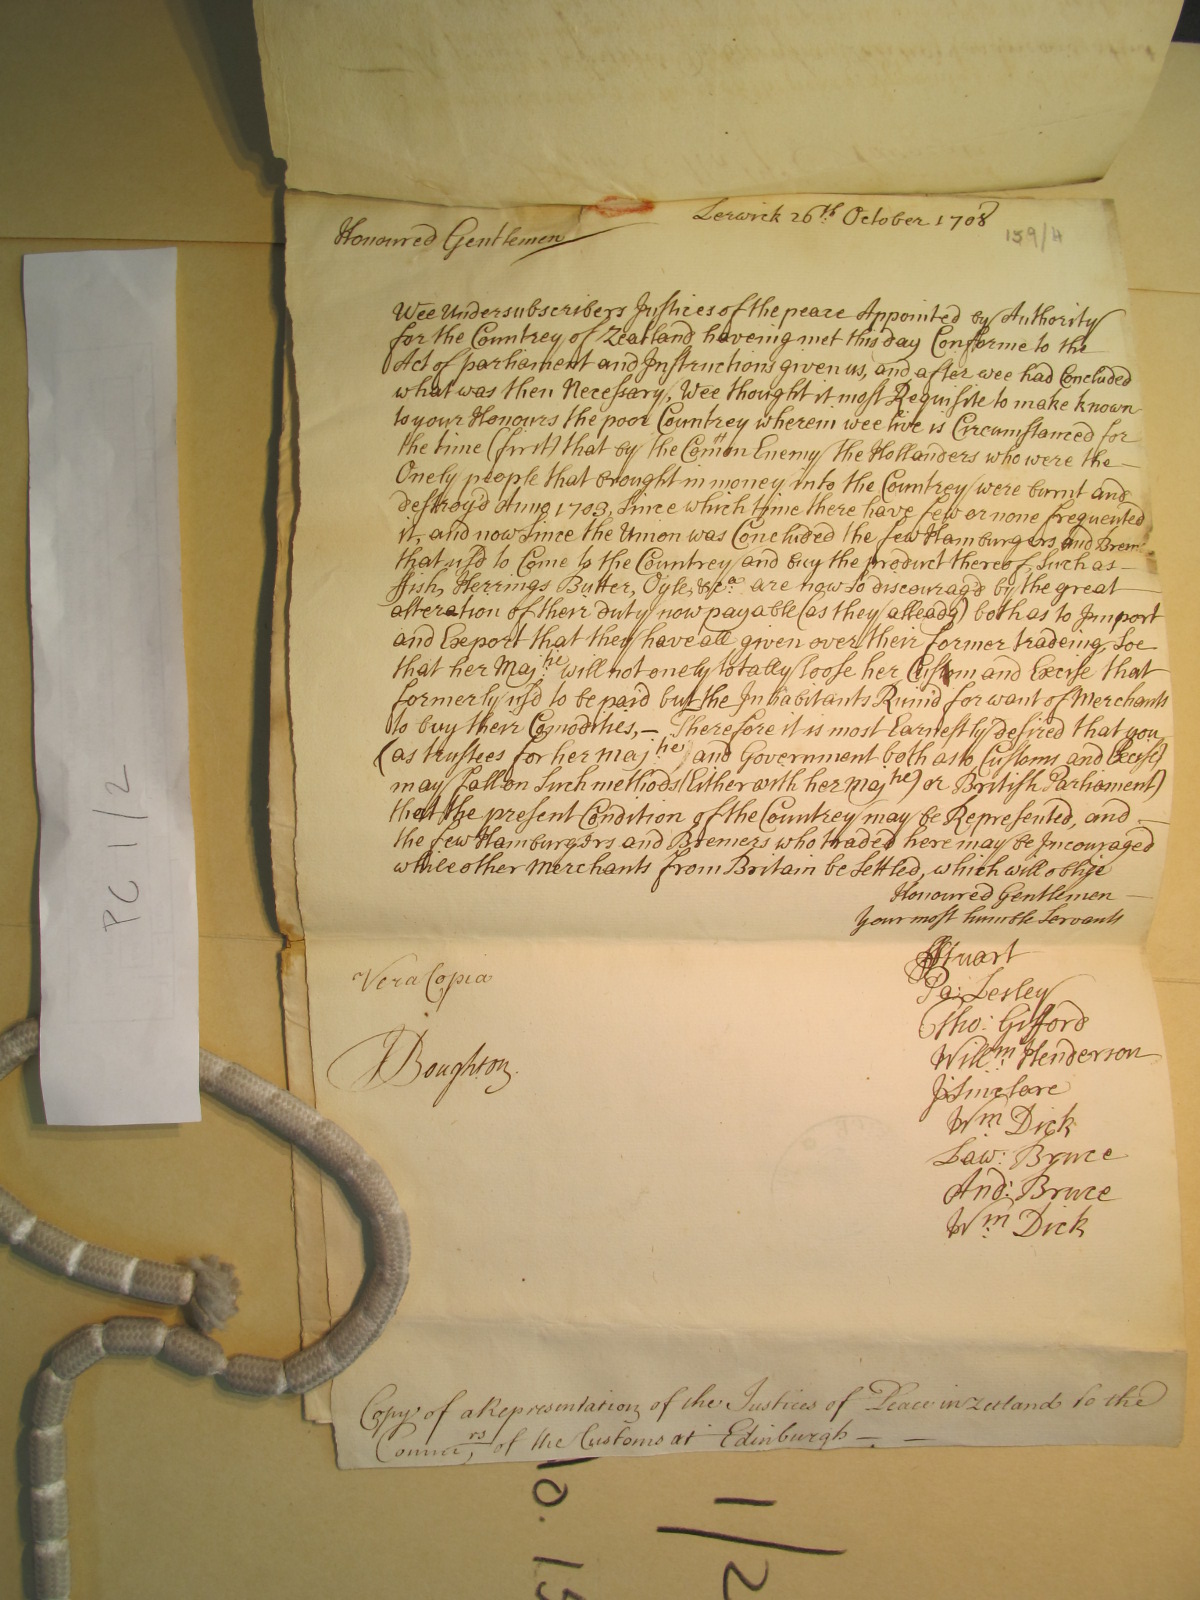 Lerwick 26th October 1708
159/4
Honoured Gentlemen
Wee Undersubscribers Justices of the peace Appointed by Authority
for the Countrey of Zeatland haveing met this day Conforme to the
Act of parliament and Instructions given us, and after wee had Concluded
what was then Necessary, Wee thought it most Requisite to make known
to your Honours the poor Countrey wherein wee live is Circumstanced for
the time (first) that by the Comon Enemy the Hollanders who were the
Onely people that brought in money into the Countrey were burnt and
destroy'd Anno 1703, Since which time there have few or none frequented
it, and now Since the Union was Concluded the few Hamburgers and Brem:
that us'd to Come to the Countrey and buy the product thereof, Such as
ffish, Herrings Butter, Oyle, &ca are now so discourag'd by the great
alteration of their duty now payable (as they alleadg) both as to Import
and Export that they have all given over their former tradeing, Soe
that her Majtie will not onely totally loose her Custom and Excise that
formerly us'd to be paid but the Inhabitants Ruin'd for want of Merchants
to buy their Comodities, — Therefore it is most Earnestly desired that you
(as trustees for her Majtie and Government both as to Customs and Excise)
may fall on Such methods (Either with her Majtie) or British Parliament)
that the present Condition of the Countrey may be Represented, and
the few Hamburgers and Bremers who traded here may be Incouraged
while other Merchants from Britain be Settled, which will oblige
Honoured Gentlemen
Your most humble Servants
Stuart
Vera Copia
Pa: Lesley
Tho: Gifford
Willm Henderson
J Boughton
J: Sinclare
Wm Dick
Law: Bruce
And: Bruce
Wm Dick
Copy of a Representation of the Justices of Peace in Zetland to the
Commrs of the Customs at Edinburgh —
PC 1/2
1/2